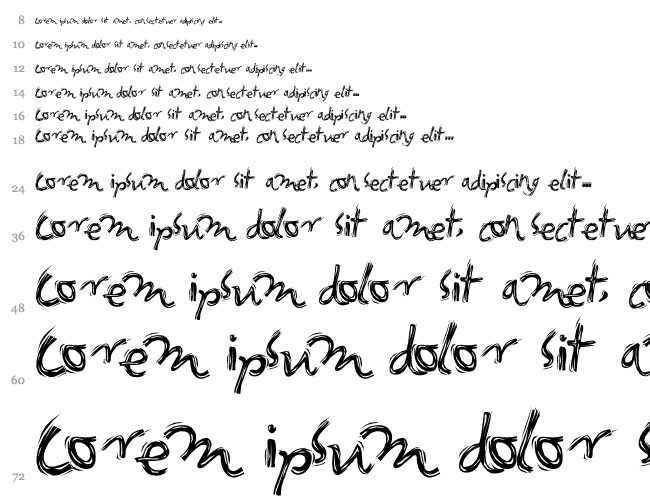 8 Lorem ipsum dolor sit amet, consectetuer adipiscing elit...
10 Lorem ipsum dolor sit amet, consectetuer adipiscing elit...
12 Lorem ipsum dolor sit amet, consectetuer adipiscing elit...
14 Lorem ipsum dolor sit amet, consectetuer adipiscing elit...
16 Lorem ipsum dolor sit amet, consectetuer adipiscing elit...
18 Lorem ipsum dolor sit amet, consectetuer adipiscing elit...
24 Lorem ipsum dolor sit amet, consectetuer adipiscing elit...
36 Lorem ipsum dolor sit amet, consectetue
48 Lorem ipsum dolor sit amet, c
60 Lorem ipsum dolor sit a
72 Lorem ipsum dolor s